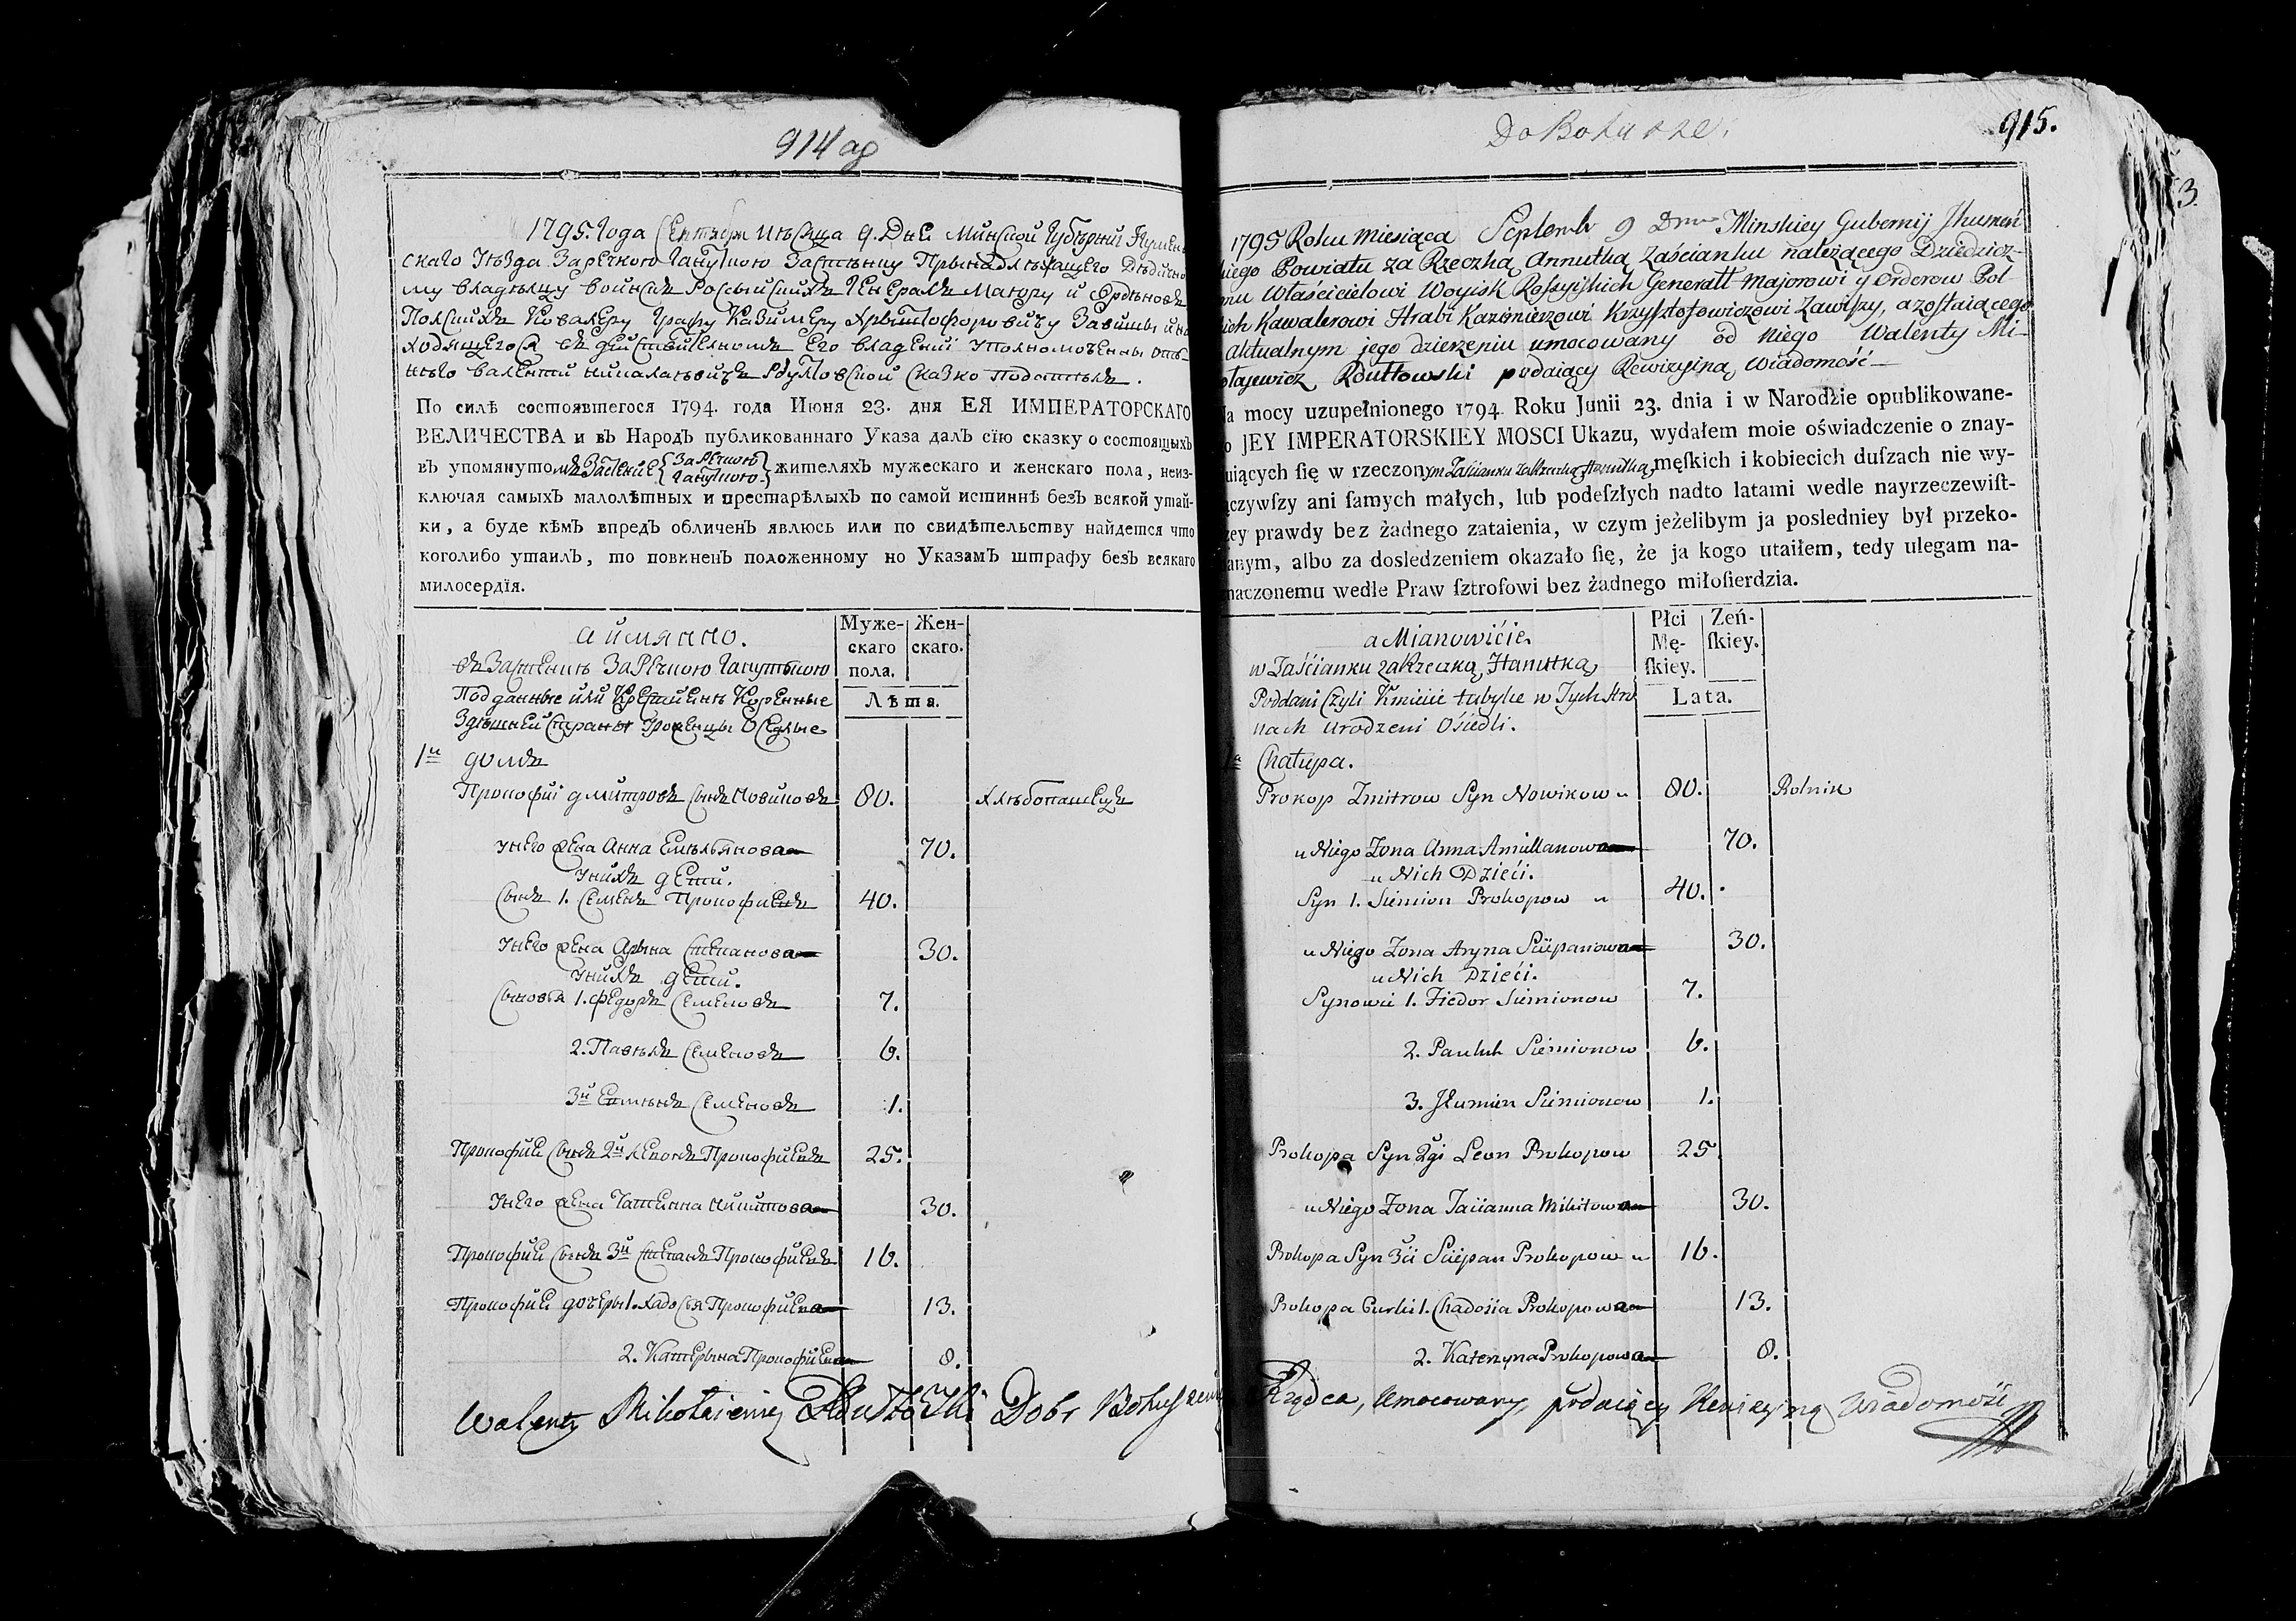 914 аф
1795. Года Сентября мѣсяца 9. Дня Минской Губерніи Игумен-
скаго Уезда Заречкого Застенку Прынадлежащего Дѣдично-
му владелцу войскъ Россыискихъ Генералъ Маюру и Орденовъ
Полскихъ Ковалеру Графу Казимеру Хрыштофоровичу Завишы и на-
ходящегося въ действителномъ Его владении Уполномоченны отъ
него Валенти Николаевичъ Рдултовской сказко подаетелъ.
По силѣ состоявшегося 1794. года Июня 23. дня ЕЯ ИМПЕРАТОРСКАГО
ВЕЛИЧЕСТВА и въ Народъ публикованнаго Указа далъ сїю сказку о состоящыхъ
въ упомянутомъ Застенке Заречкою жителяхъ мужескаго и женскаго пола, неиз-
ключая самыхъ малолѣтныхъ и престарѣлыхъ по самой истиннѣ безъ всякой утай-
ки, а буде кѣмъ впредъ обличенъ явлюсь или по свидѣтельству найдется что
коголибо утаилъ, то повиненъ положенному по Указамъ штрафу безъ всякаго
милосердїя.
а имянно. Муже- Жен-
скаго скаго.
въ Застенкѣ Заречкою пола.
Подданные или Крестиянѣ Коренные Лѣта.
Здешней Страны Уроженцы Оседлые
1й домъ
Прокофий Дмитровъ сынъ Новиковъ 80. хлѣбопашецъ
у него жена Анна Емельянова 70.
у нихъ дети.
Сынъ 1. Семенъ Прокофиевъ 40.
у него жена Арына Степанова 30.
у нихъ дети.
Сыновья 1. Федоръ Семеновъ 7.
2. Павелъ Семеновъ 6.
3й Семеновъ 1.
Прокофия сынъ 2й Леонъ Прокофиевъ 25.
у него жена Татиянна Микитова 30.
Прокофия сынъ 3й Степанъ Прокофиевъ 16.
Прокофия дочеры 1. Хадосья Прокофиева 13.
2. Катерына Прокофиева 8.
Walenty Mikołaiewicz Rdułtowski Dobr Bokuszewi
915.
3
1795 Roku Miesiąca Septemb 9 Dnia Minskiey Gubernij Jhumeń
kiego Powiatu za Rzeczką Annutką Zaścianku należącego Dziedzicz-
mu Właścicielowi Woyisk Rossyiskich Generałł Majorowi y Orderow Pol
ich Kawalerowi Hrabi Kazimierzowi Krzysztofowiczowi Zawiszy, a zostaiącego
aktualnym jego dzierżeniu umocowany od niego Walenty Mi-
ołajewicz Rdułtowski podaiący Rewizyiną Wiadomość
a mocy uzupełnionego 1794. Roku Junii 23. dnia i w Narodzie opublikowane-
o JEY IMPERATORSKIEY MOSCI Ukazu, wydałem moie oświadczenie o znay-
uiących ſię w rzeczonym Zaścianku za Rzeczką Hanutką męſkich i kobiecich duſzach nie wy-
ączywſzy ani ſamych małych, lub podeſzłych nadto latami wedle nayrzeczewiſt-
zey prawdy bez żadnego zataienia, w czym jeżelibym ja posledniey był przeko-
anym, albo za dosledzeniem okazało ſię, że ja kogo utaiłem, tedy ulegam na-
naczonemu wedle Praw ſztrofowi bez żadnego miłoſierdzia.
a Mianowicie Płci Zeń-
Mę- ſkiey.
w Zaścianku za Rzeczką Hanutką ſkiey.
Poddani Czyli Kmiecie tubylce w Tych Stro Lata.
nach Urodzeni Ośiedli.
1a Chałupa.
Prokop Zmitrow Syn Nowikow 80. Rolnik
u Niego Zona Anna Amillanowa 70.
u Nich Dzieći.
Syn 1. Siemion Prokopow 40.
u Niego Zona Aryna Sciepanowa 30.
u Nich Dzieći.
Synowie 1. Fiedor Siemionow 7.
2. Pauluk Siemionow 6.
3. Jłumien Siemionow 1.
Prokopa Syn 2gi Leon Prokopow 25
u Niego Zona Taciianna Mikitowa 30.
Prokopa Syn 3ci Sciepan Prokopow 16.
Prokopa Curki 1. Chadosia Prokopowa 13.
2. Katerzyna Prokopowa 8.
Rządca, Umocowany, podaiący Rewizyiną Wiadomość